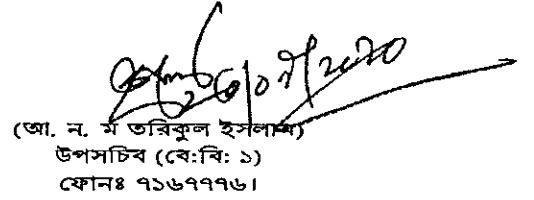 (আ. ন. ম তরিকুল ইসলাম)
উপসচিব (বে:বি: ১)
ফোনঃ ৭১৬৭৭৭৬।